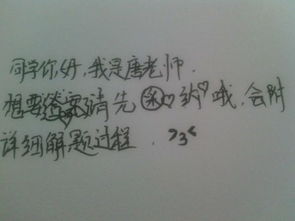 同学你好,我是唐老师.
想要答案请先采♡纳♡哦,会附
详细解题过程. >3<